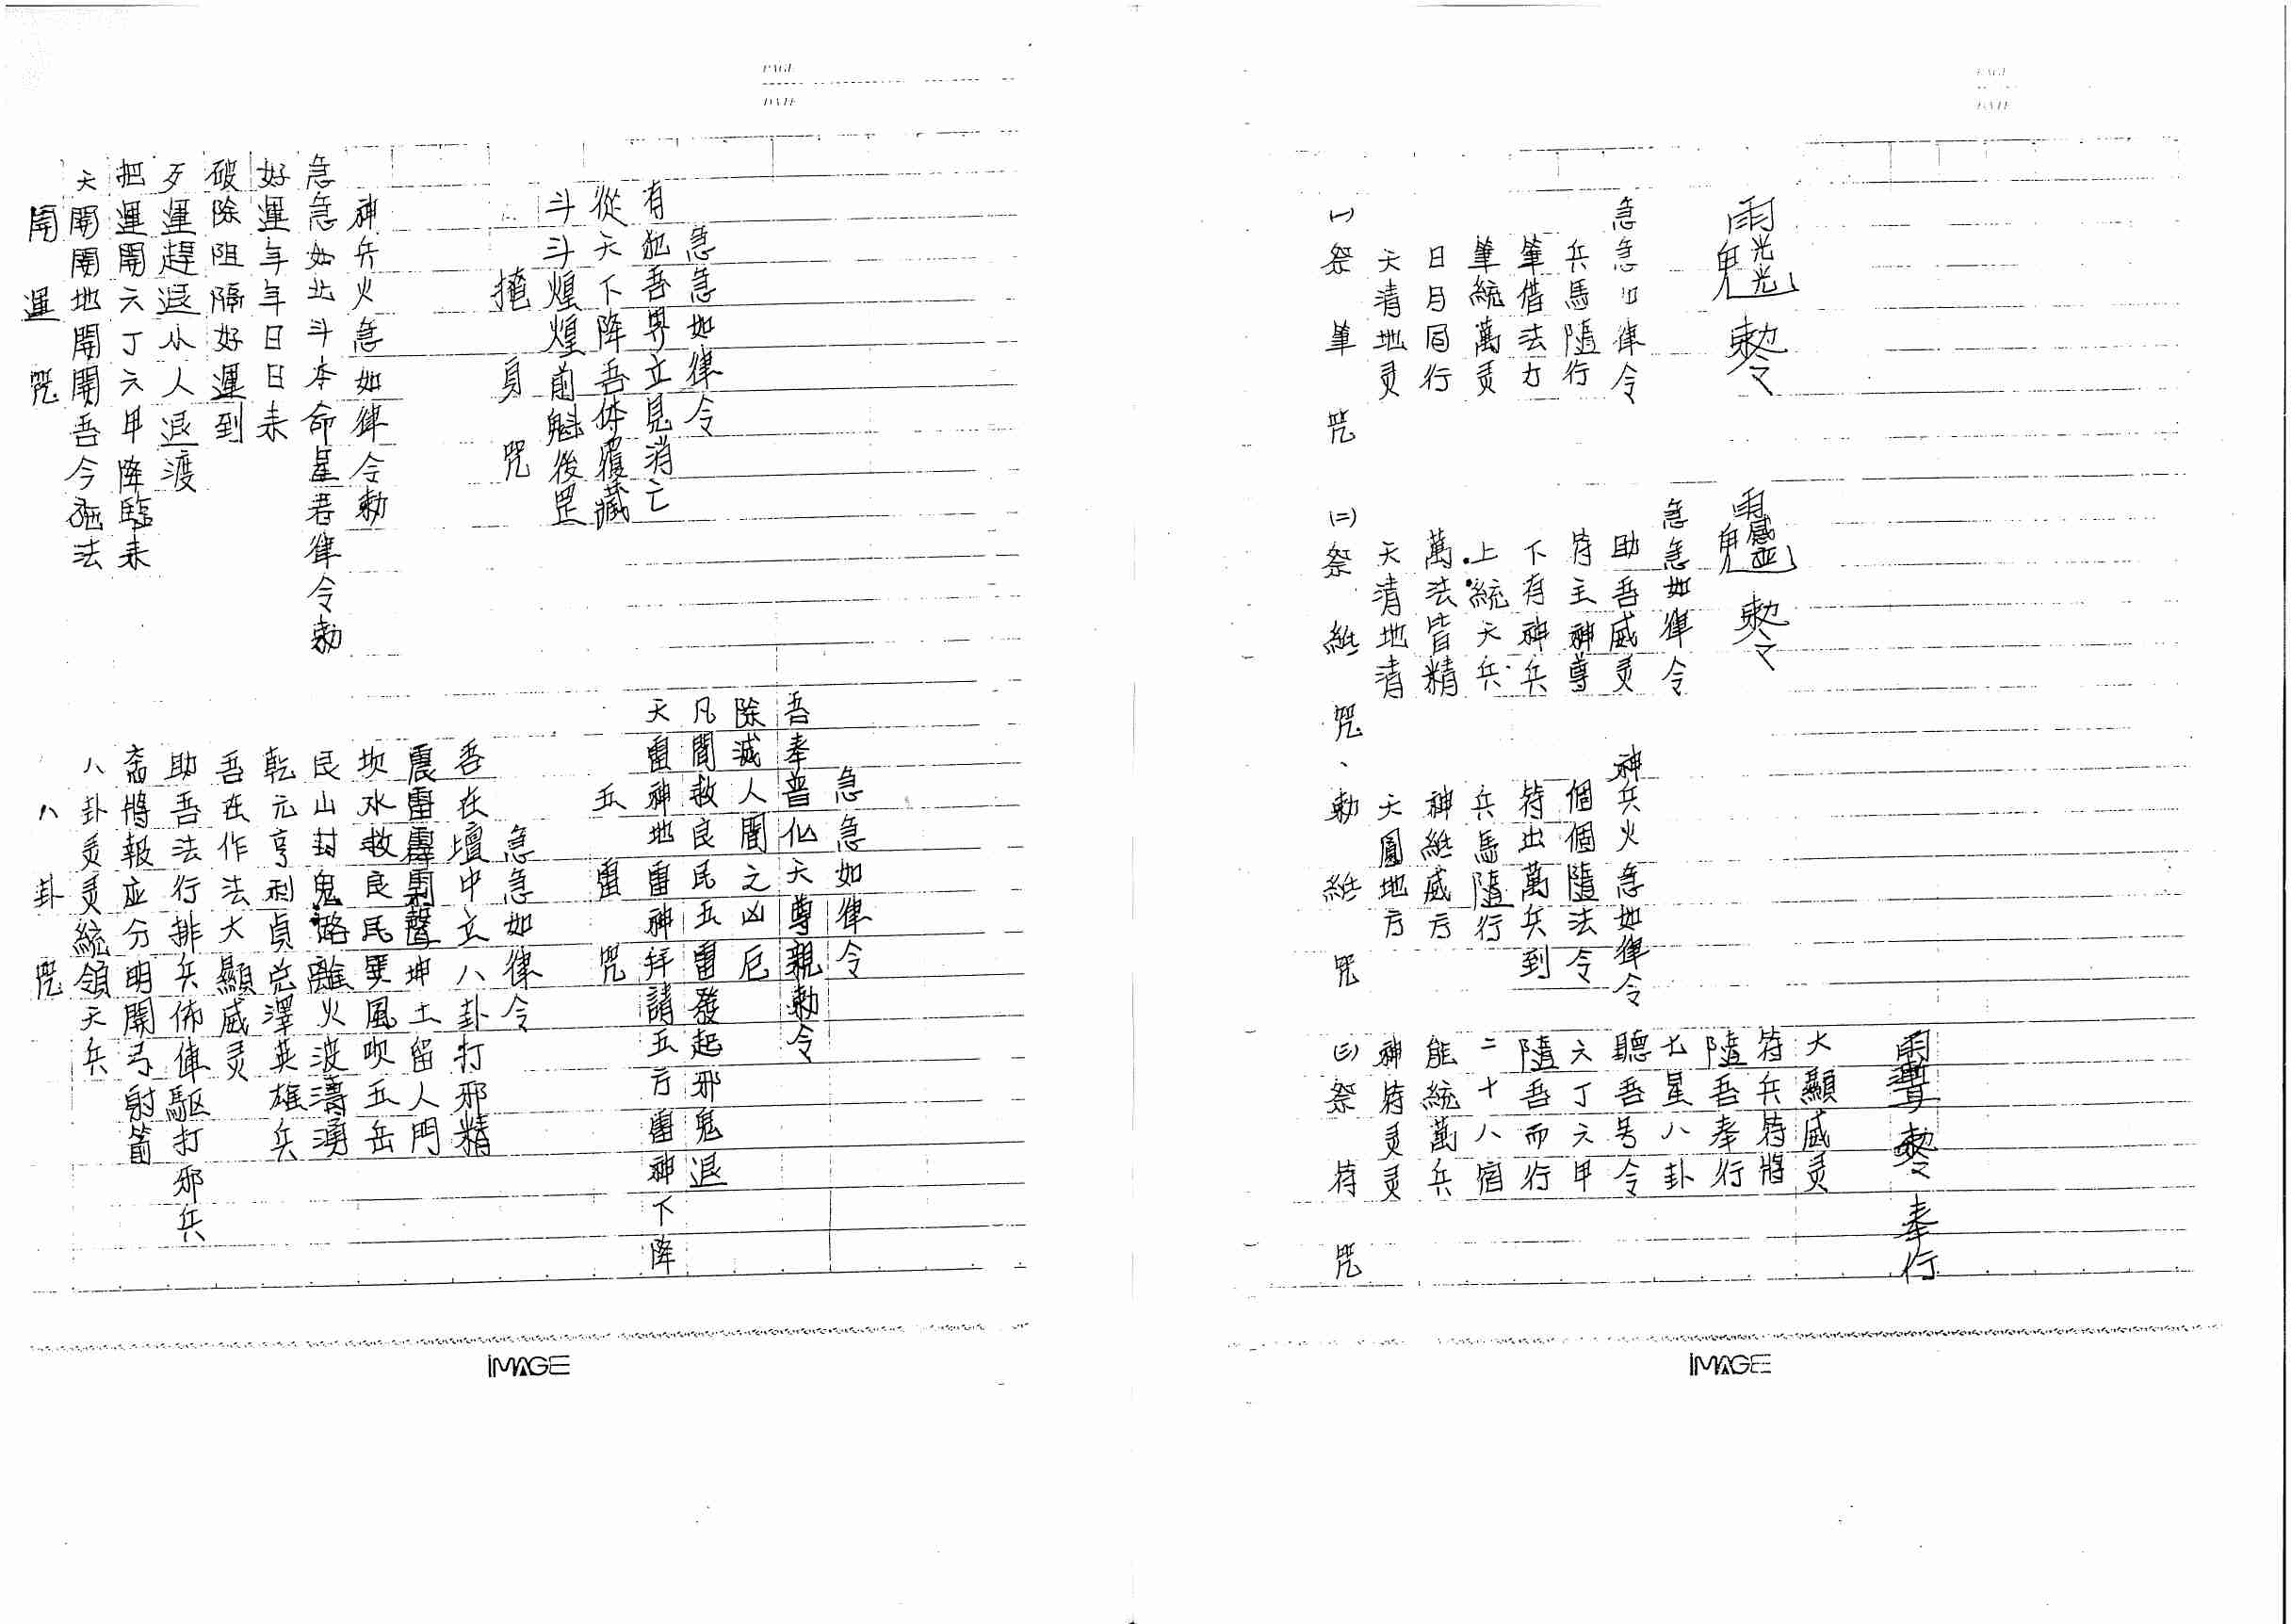 PAGE
DATE
開運咒
天開開地開開吾今施法
把運開六丁六甲降臨耒
歹運趕退小人退渡
破除阻隔好運到
好運年年日日耒
急急如北斗本命星君律令勅
神兵火急如律令勅
掩身咒
斗斗煌煌前魁後罡
從天下降吾体覆藏
有犯吾界立見消亡
急急如律令
八卦咒
八卦灵灵統領天兵
斎將報应分明開弓射箭
助吾法行排兵佈陣驅打邪兵
吾在作法大顯威灵
乾元亨利貞兌澤英雄兵
艮山封鬼路離火波濤湧
坎水救良民巽風吹五岳
震雷霹靂聲坤土留人門
吾在壇中立八卦打邪精
急急如律令
五雷咒
天雷神地雷神拜請五方雷神下降
凡間救良民五雷發起邪鬼退
除滅人間之凶厄
吾奉普化天尊親勅令
急急如律令
IMAGE
PAGE
DATE
(一)祭筆咒
天清地灵
日月同行
筆統萬灵
筆借法力
兵馬隨行
急急如律令
勅令
(二)祭紙咒、
天清地清
萬法皆精
上統天兵
下有神兵
符主神尊
助吾威灵
急急如律令
勅令
勅紙咒
天圓地方
神紙威方
兵馬隨行
符出萬兵到
個個隨法令
神兵火急如律令
(三)祭符咒
神符灵灵
能統萬兵
二十八宿
隨吾而行
六丁六甲
聽吾号令
七星八卦
隨吾奉行
符兵符將
大顯威灵
勅令奉行
IMAGE